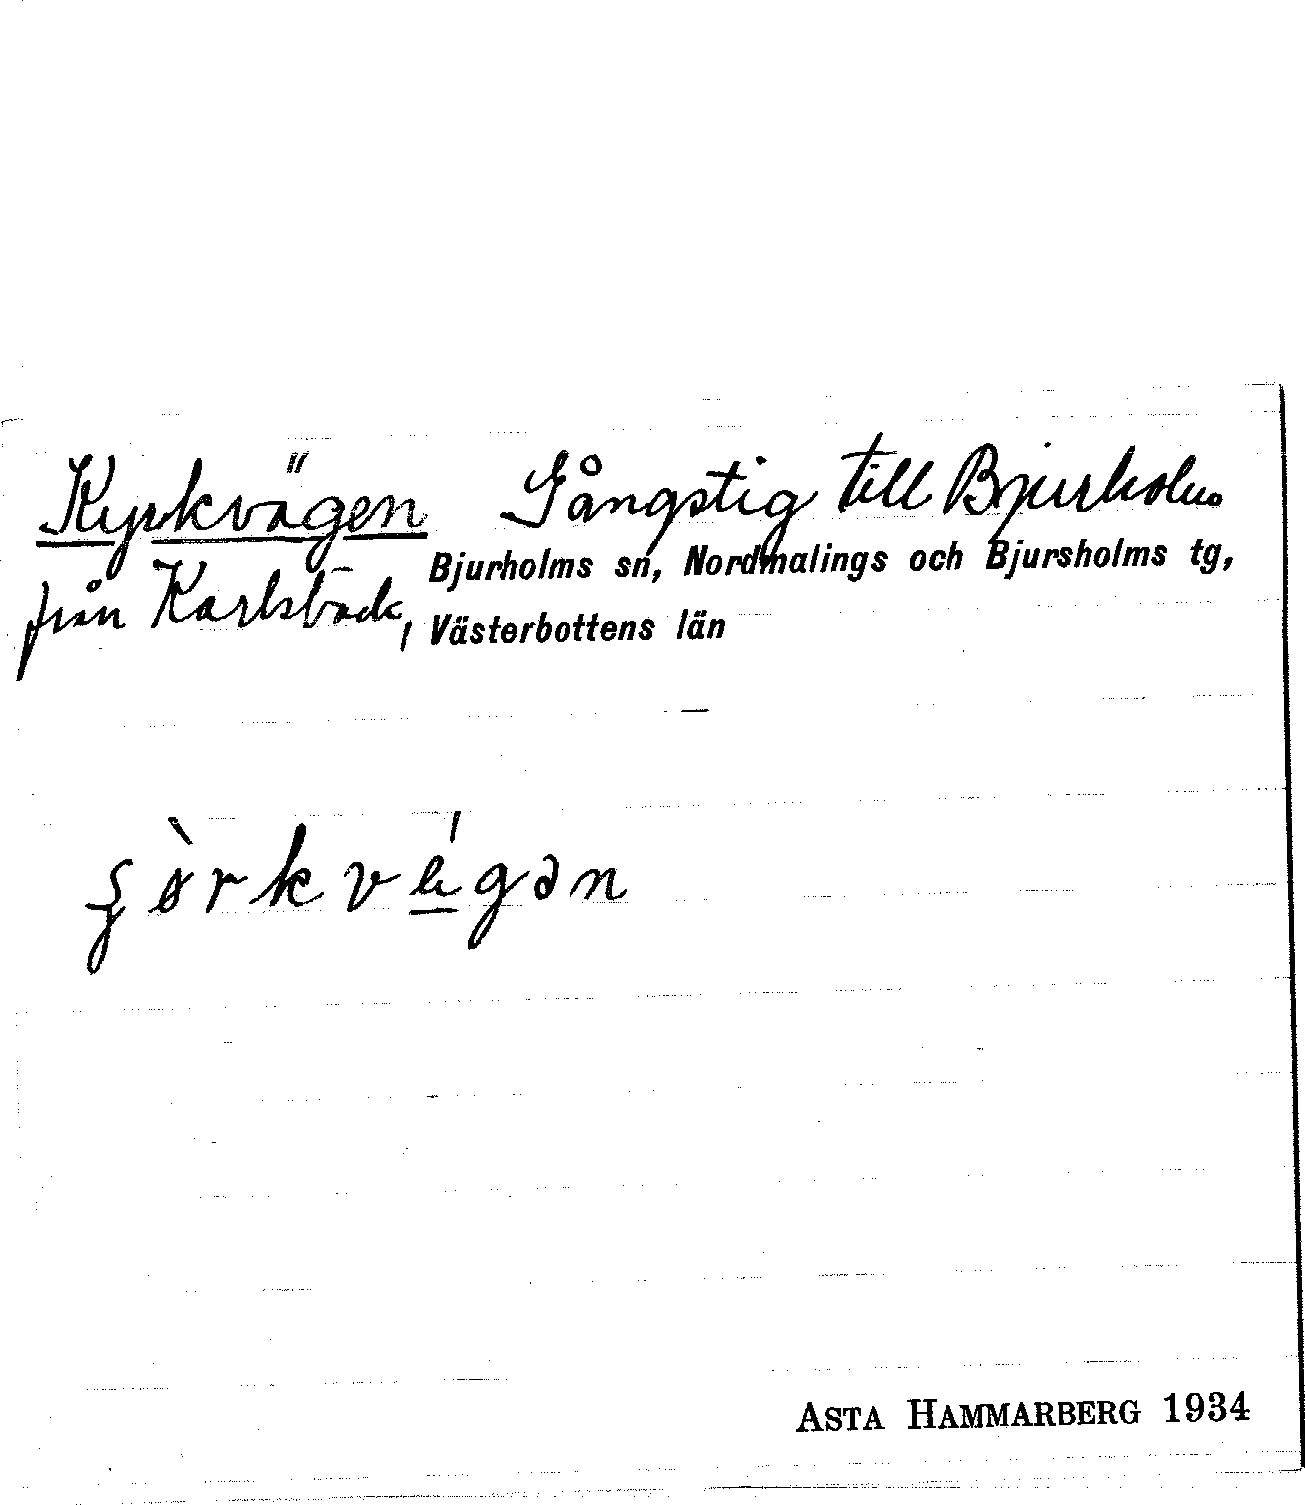 Kyrkvägen Gångstig till Bjurholm
från Karlsbäck, Bjurholms sn, Nordmalings och Bjursholms tg,
Västerbottens län
ʂørkvègən
ASTA HAMMARBERG 1934